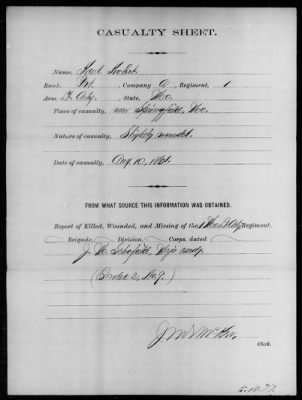 CASUALTY SHEET.
Name, Karl
Rank, Pvt. Company A, Regiment, 1
Arm, State, Mo.
Place of casualty, near Springfield, Mo.
Nature of casualty, Slightly wounded
Date of casualty, Aug 10, 1861.
FROM WHAT SOURCE THIS INFORMATION WAS OBTAINED.
Report of Killed, Wounded, and Missing of the 1 Mo. Regiment.
Brigade, Division, Corps, dated
J. M. Schofield, Major
Clerk.